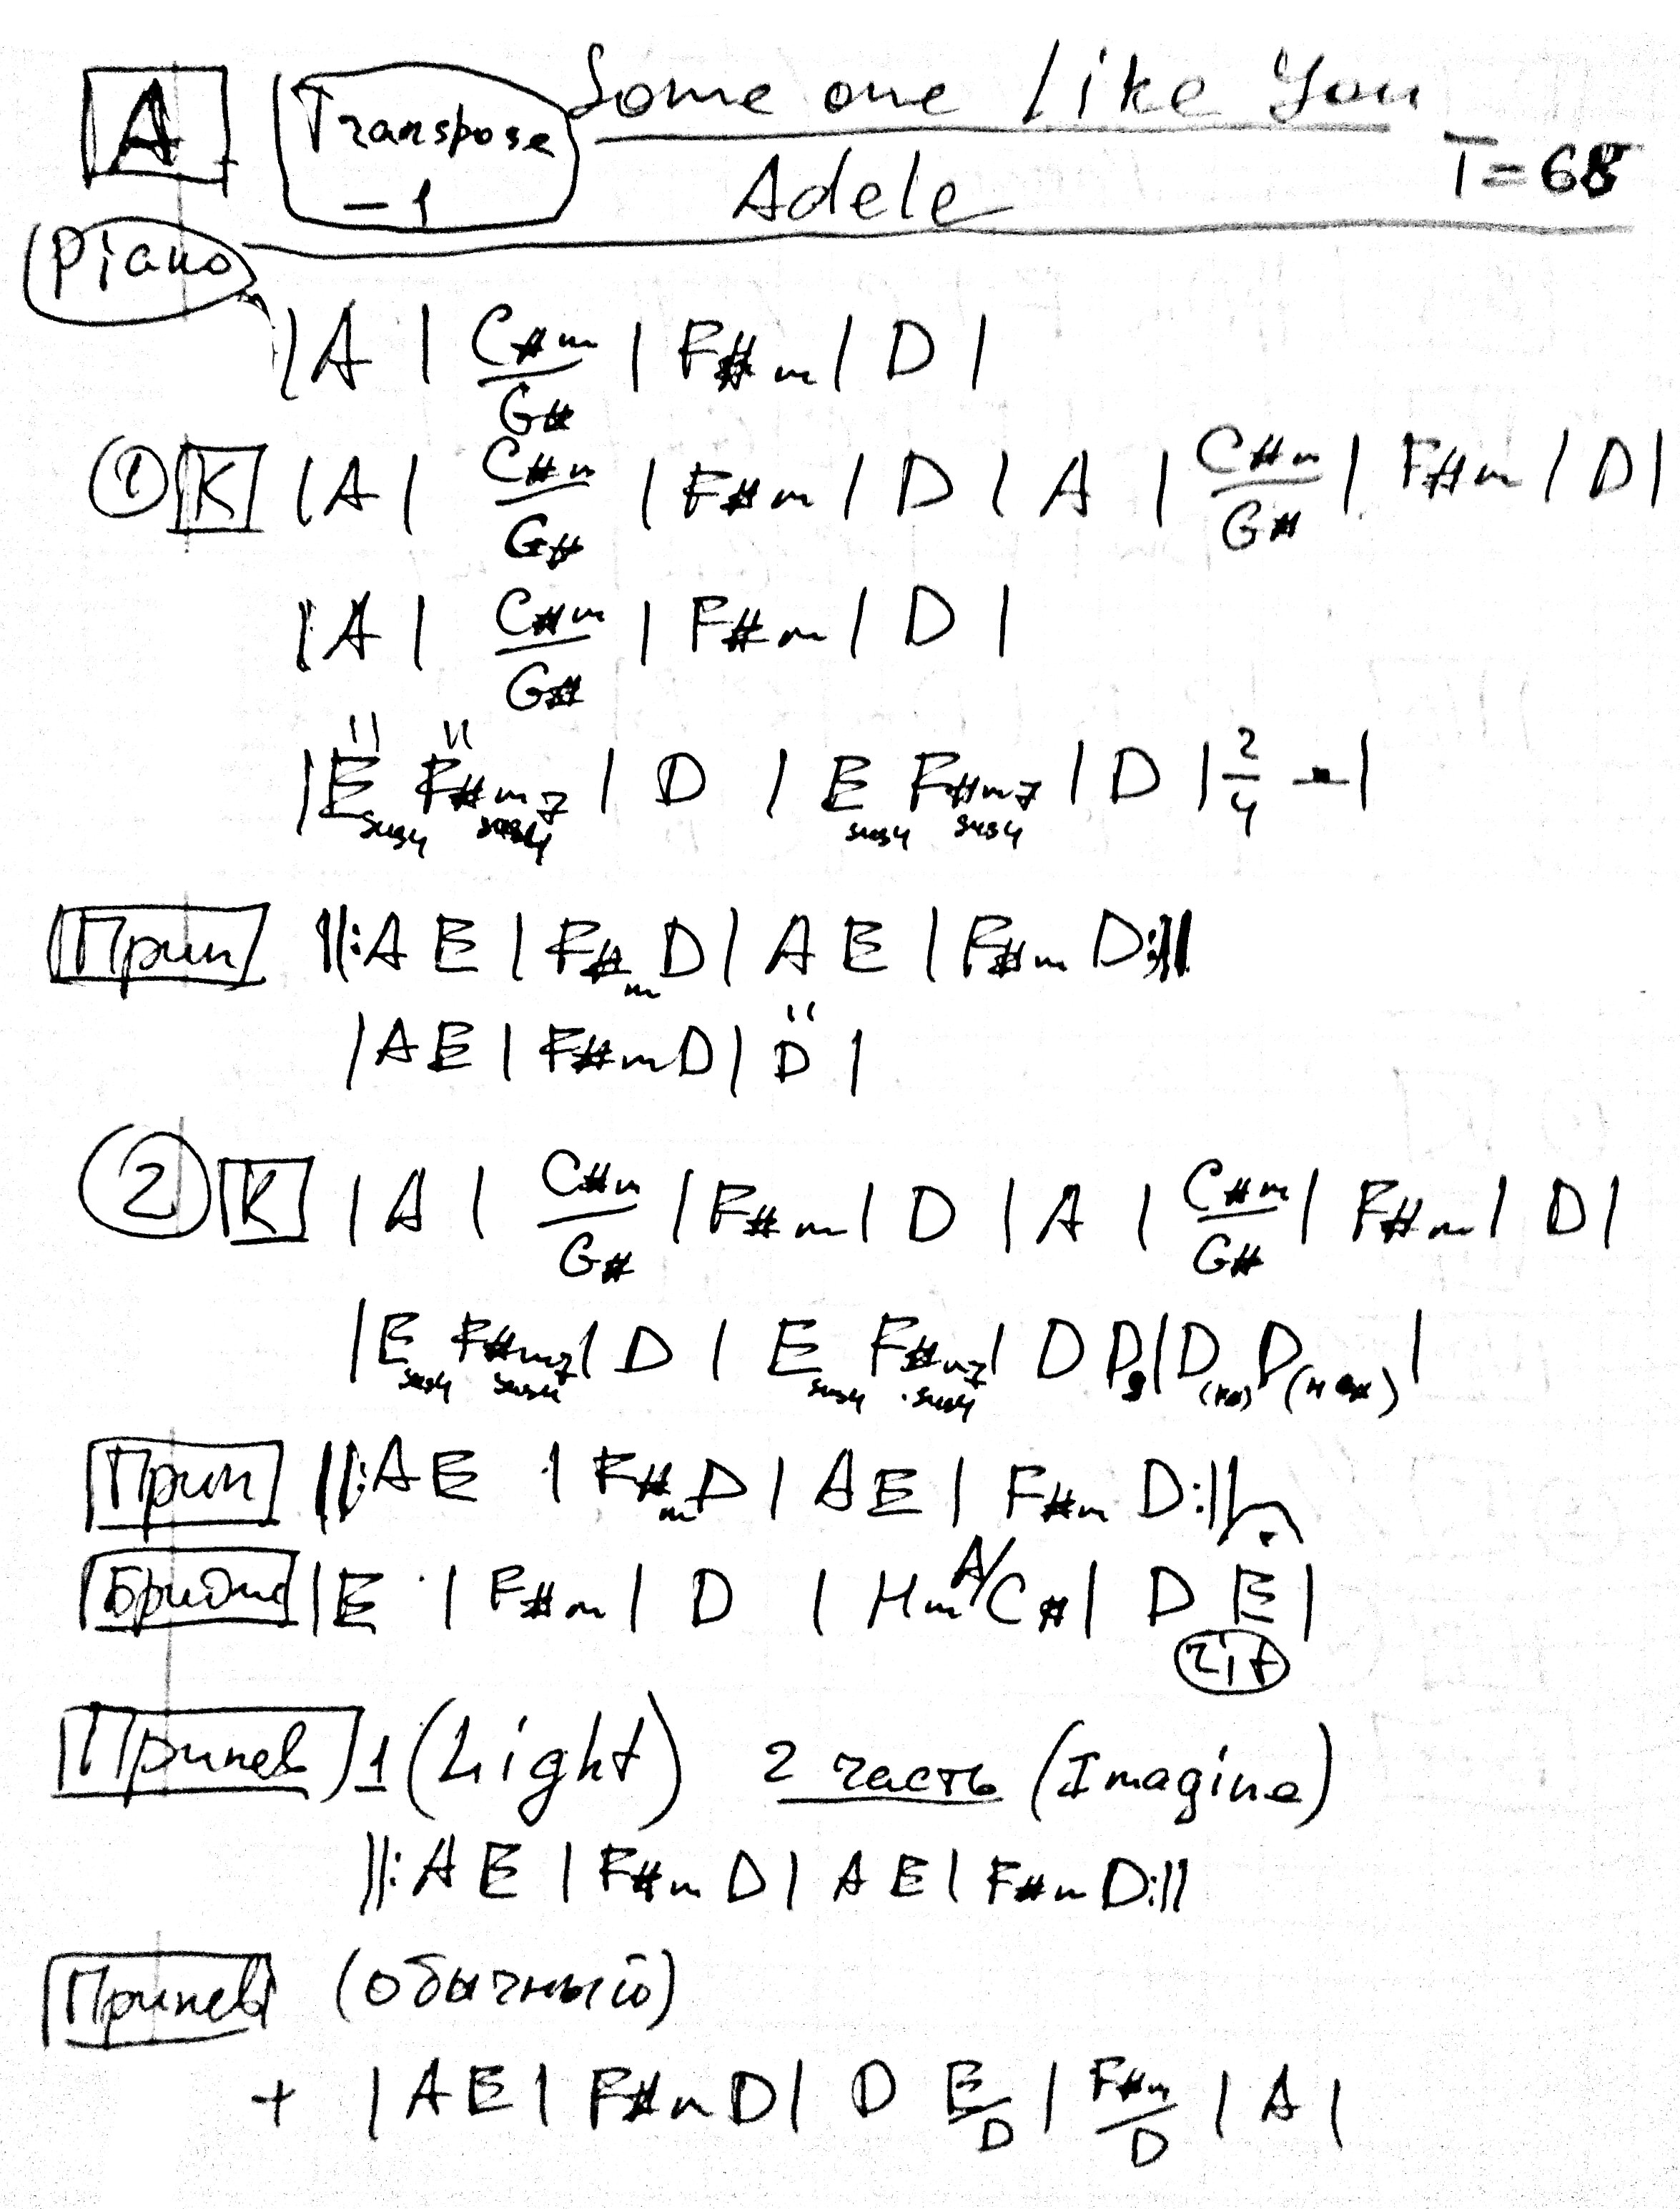 A Transpose -1 Some one like You
Adele T=68
Piano
| A | C#m/G# | F#m | D |
① К | A | C#m/G# | F#m | D | A | C#m/G# | F#m | D |
| A | C#m/G# | F#m | D |
| Esus4 F#m7sus4 | D | Esus4 F#m7sus4 | D | 2/4 - |
Прип ||: A E | F#m D | A E | F#m D :||
| A E | F#m D | D |
② К | A | C#m/G# | F#m | D | A | C#m/G# | F#m | D |
| Esus4 F#m7sus4 | D | Esus4 F#m7sus4 | D D9 | D D |
Прип ||: A E | F#m D | A E | F#m D :||
Бридж | E | F#m | D | Hm A/C# | D E |
rit
Припев 1 (Light) 2 часть (Imagine)
||: A E | F#m D | A E | F#m D :||
Припев (обычный)
+ | A E | F#m D | D E/D | F#m/D | A |